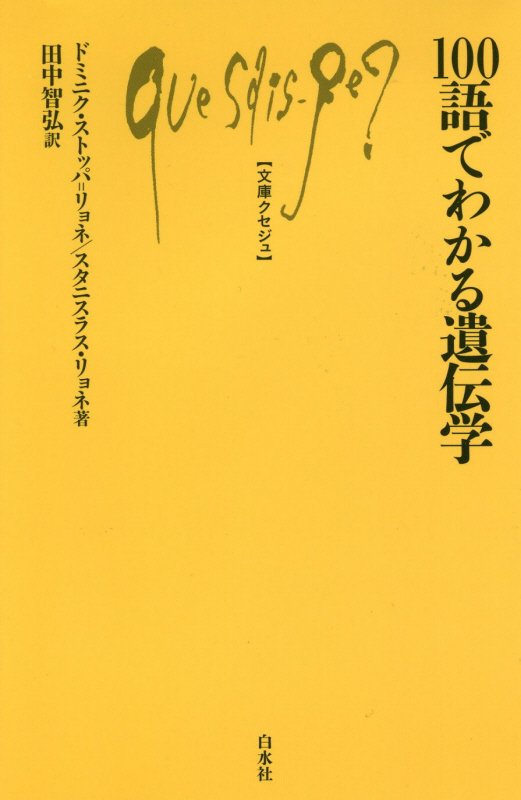 100語でわかる遺伝学
Que sais-je?
【文庫クセジュ】
ドミニク・ストッパ=リョネ/スタニスラス・リョネ著
田中智弘訳
白水社